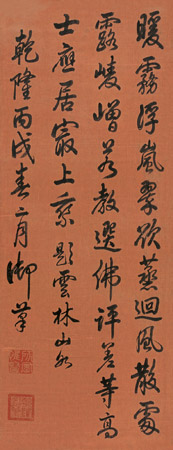 暖霧浮嵐翠欲蒸迴風散處
露崚嶒若教選佛評差等高
士應居最上乘 題雲林山水
乾隆丙戌春二月御筆